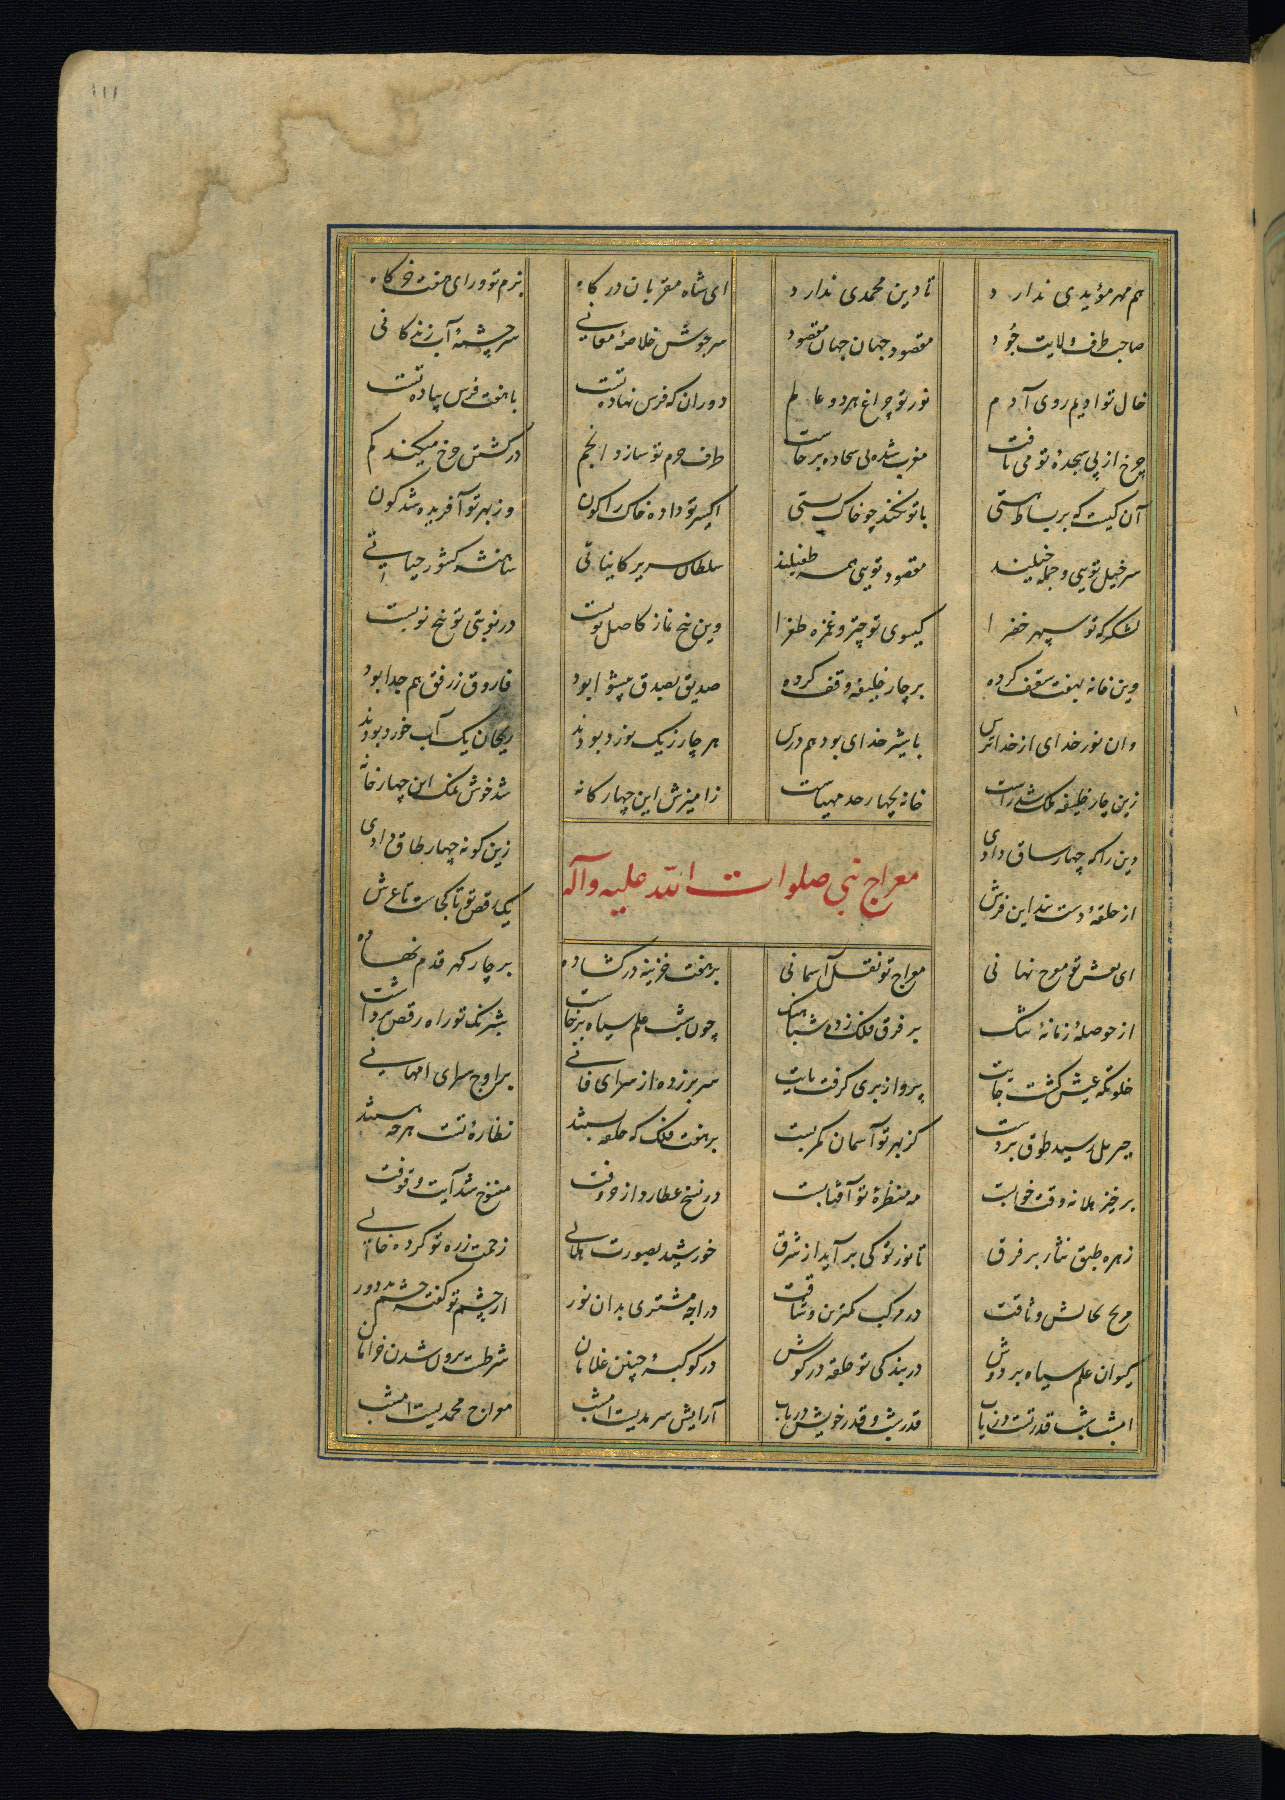 ١١١
هم مهر مؤیدی ندارد تا دین محمدی ندارد ای شاه مقربان درگاه بزم تو ورای هفت خرگاه
صاحب طرف ولایت جود مقصود جهان جهان مقصود سرجوش خلاصهٔ معانی سرچشمهٔ آب زندگانی
خال تو ادیم روی آدم نور تو چراغ هر دو عالم دوران که فرس نهاده تست با هفت فرس پیاده تست
چرخ از پی سجدهٔ تو می مغرب شده بی سجاده برخاست طرف حرم تو سازد انجم در گشتن چرخ میکند کم
آن کیست که بر بساط هستی با تو نکند چو خاک پستی اکسیر تو داده خاک را کون وز بهر تو آفریده شد کون
سر خیل تویی و جمله خیلند مقصود تویی همه طفیلند سلطان سریر کایناتی شاهنشه کشور حیاتی
لشکرکه تو سپهر خضرا کیسوی تو چتر و غمزه طغرا وین پنج نماز کاصل توبست در نوبتی تو پنج نوبست
وین خانه بهفت سقف کرده بر چار خلیفه وقف کرده صدیق بصدق پیشوا بود فاروق ز فرق هم جدا بود
وان نور خدای از خداترس با شیر خدای بود هم درس هر چار ز یک نورد بودند ریحان یک آب خورد بودند
زین چار خلیفه ملک شد راست خانه بچهار حد مهیاست زامیزش این چهار کانه شد خوش نمک این چهار خانه
دین را که چهار ساق دادی زین کونه چهار طاق دادی
از حلقهٔ دست بند این فرش یک رقص تو تا کجاست تا عرش
معراج نبی صلوات الله علیه وآله
ای نعش تو معرج نهانی معراج تو نقل آسمانی بر هفت خزینه در کشاده بر چار کهر قدم نهاده
از حوصلهٔ زمانهٔ تنگ بر فرق فلک زده شباهنک چون شب علم سیاه برخاست شبرنک تو راه رقص برداشت
خلوتکه عرش کشت جایت پرواز پری کرفت پایت سر برزده از سرای فانی بر اوج سرای ام هانی
جبریل رسید طوق بر دست کز بهر تو آسمان کمر بست بر هفت فلک که حلقه بستند نظارهٔ تست هرچه هستند
برخیز هلا نه وقت خوابست مه منتظر تو آفتابست در نسخ عطارد از حروفت منسوخ شد آیت وقوفت
زهره طبق نثار بر فرق تا نور تو کی برآید از شرق خورشید بصورت هلالی زحمت زره تو کرده خالی
مریخ وثاقت در مرکب کمترین وشاقت دراجه مشتری بدان نور از چشم تو کفته چشم بد دور
کیوان علم سیاه بر دوش در بندکی تو حلقه در کوش در کوکبهٔ چنین غلامان شرطست برون شدن خرامان
امشب شب قدر تست دریاب قدر شب و قدر خویش دریاب آرایش سرمدیست امشب معراج محمدیست امشب